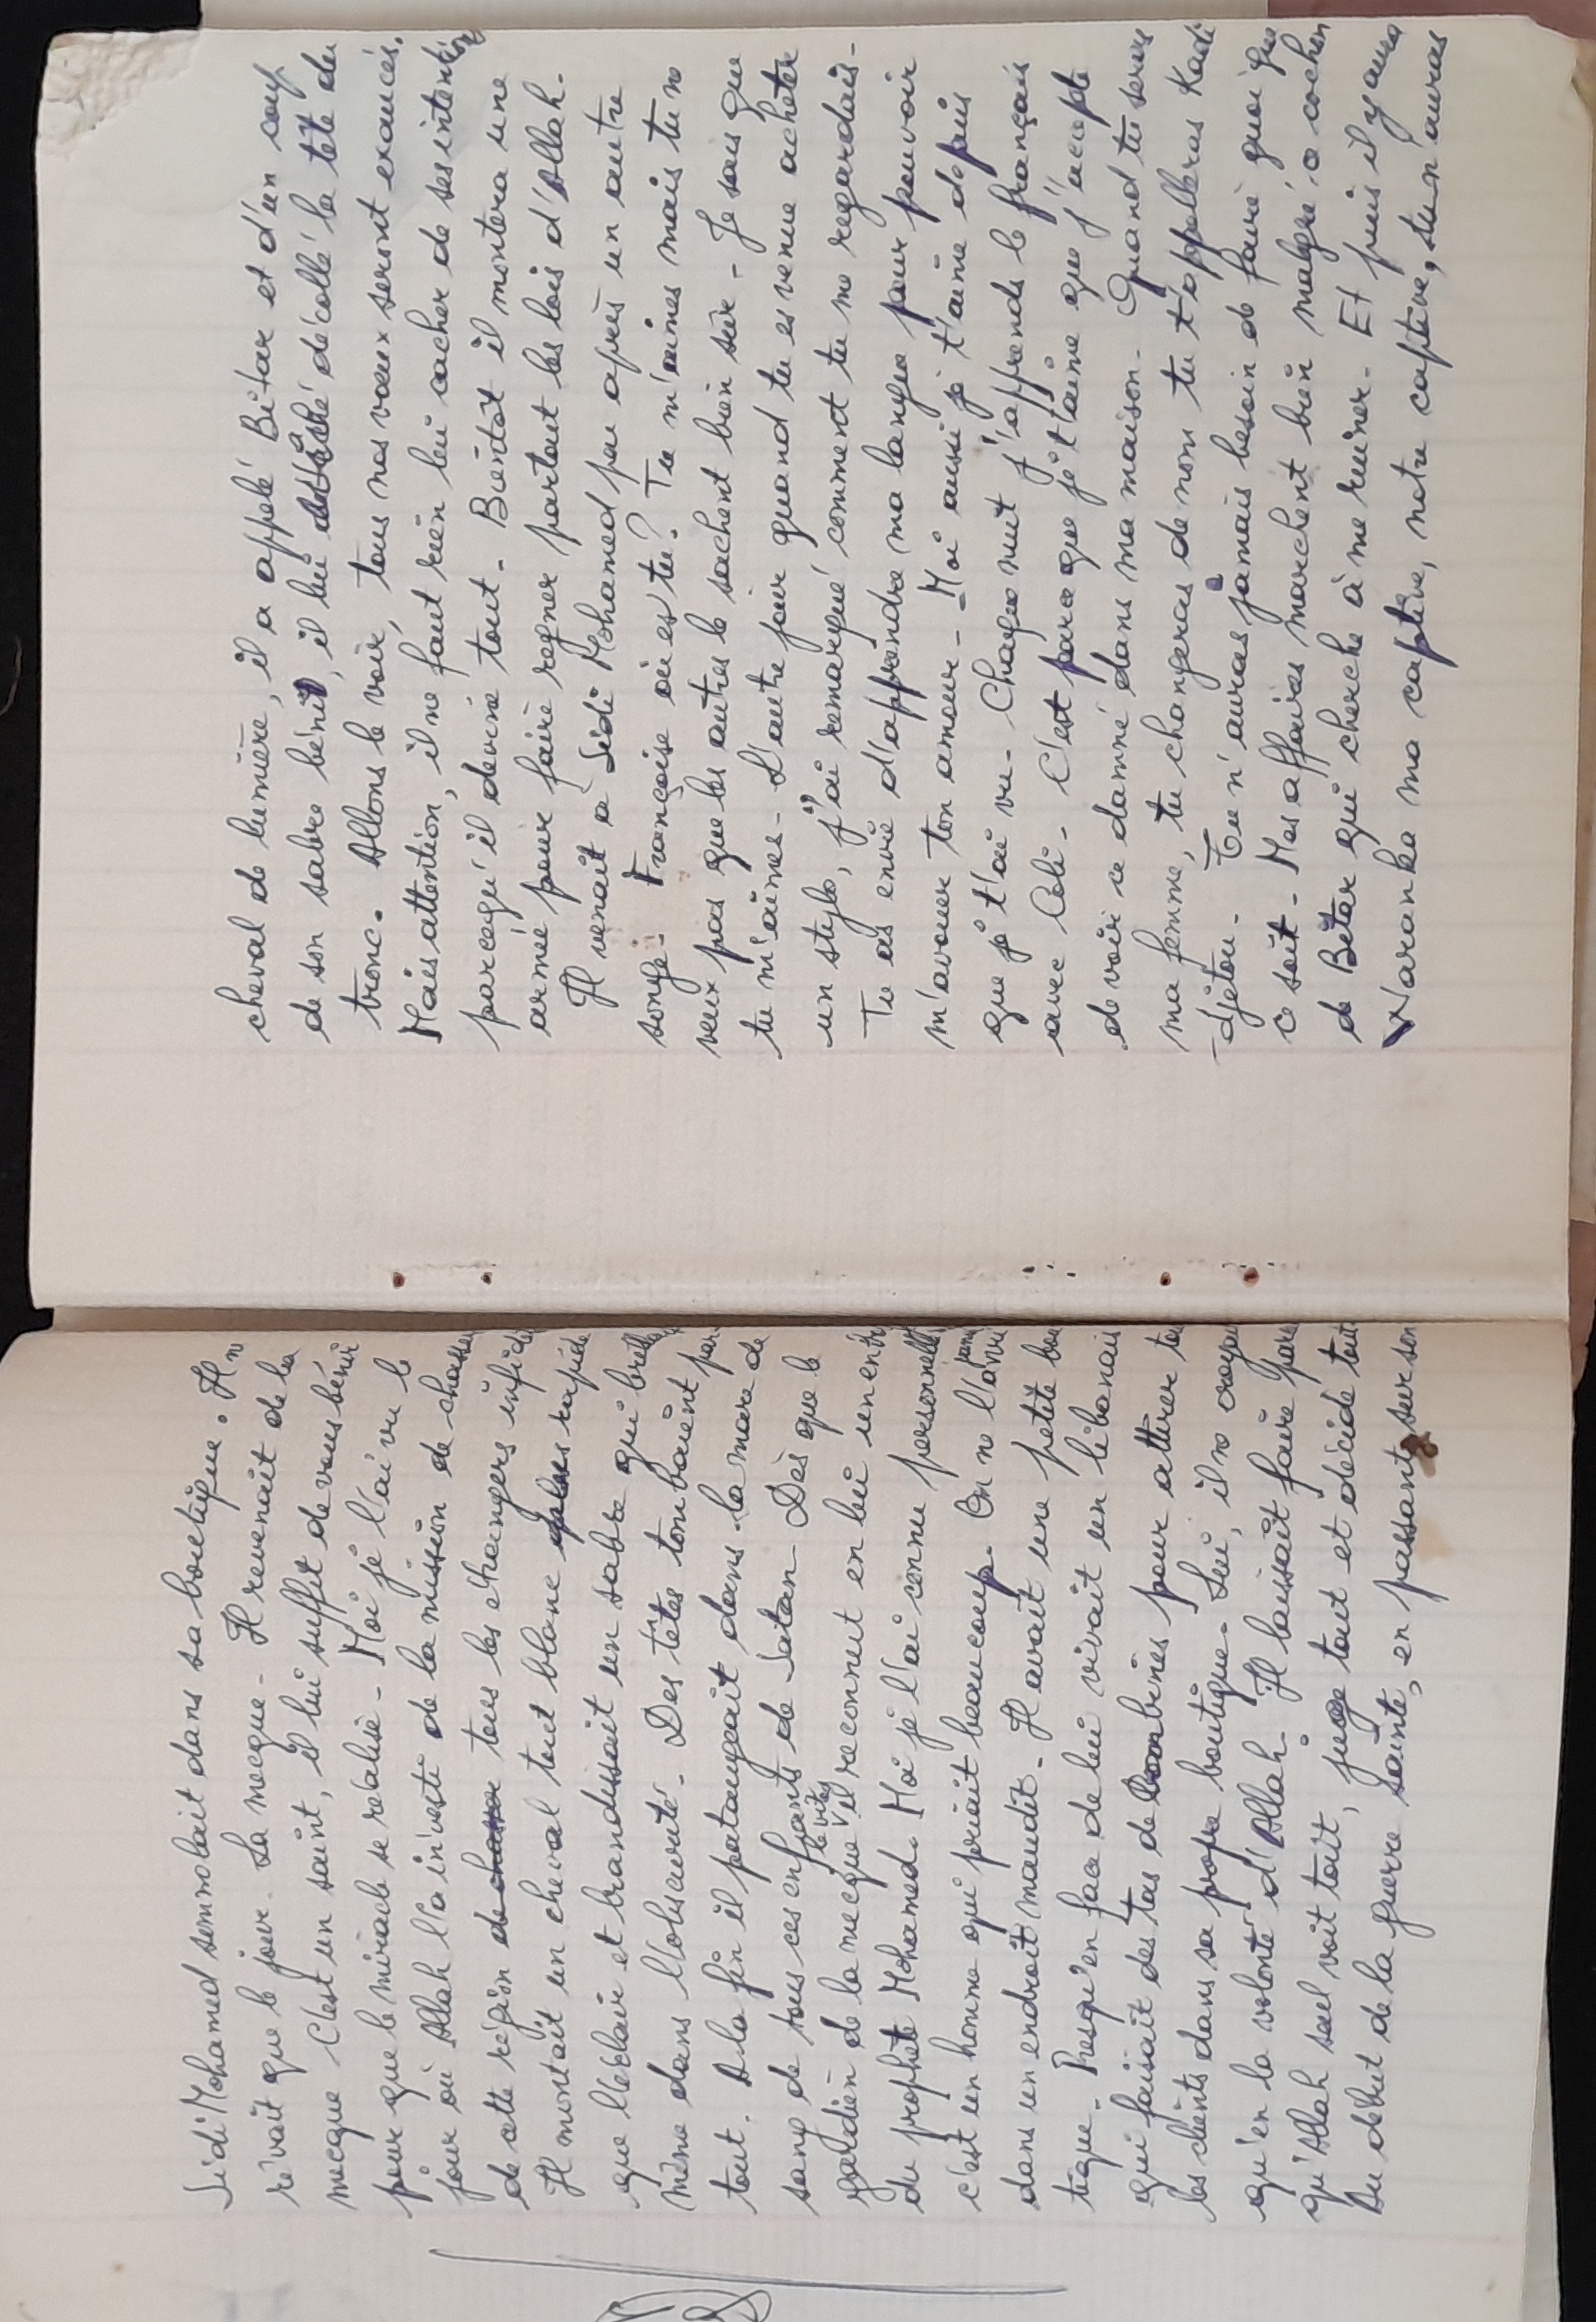 Sidi Mohamed semnolait dans sa boutique. Il n
rêvait que le jour. La mecque. Il revenait de la
mecque C'est un saint, il lui suffit de vous bénir
pour que le miracle se réalise. Moi je l'ai vu le
jour où Allah l'a investi de la mission de chasser
de cette région de chasser tous les étrangers infidèles
Il montait un cheval tout blanc plus rapide
que l'éclair et brandissait un sabre qui brille
même dans l'obscurité. Des têtes tombaient par
tout. A la fin il pataugeait dans la mare de
sang de tous ces enfants de Satan. Dès que le
gardien de la mecque le vit, il reconnut en lui un envoyé
du prophète Mohamed. Moi je l'ai connu personnellement
c'est un homme qui priait beaucoup. On ne l'a jamais vu
dans un endroit maudit. Il avait une petite bou
tique. Presqu'en face de lui vivait un libanais
qui faisait des tas de combines pour attirer tous
les clients dans sa propre boutique. Lui, il ne croyait
qu'en la volonté d'Allah. Il laissait faire parce
qu'Allah seul voit tout, juge tout et décide tout
Au début de la guerre sainte, en passant sur son
cheval de lumière, il a appelé Bitar et d'un coup
de son sabre bénit, il lui détâché décollé la tête du
tronc. Allons le voir, tous nos vœux seront exaucés.
Mais attention, il ne faut rien lui cacher de ses intentions
parcequ'il devine tout. Bientôt il montera une
armée pour faire regner partout les lois d'Allah.
Il venait à Sidi Mohamed peu après un autre
songe. Françoise où es tu? Tu m'aimes mais tu ne
veux pas que les autres le sachent bien sûr. Je sais que
tu m'aimes. L'autre jour quand tu es venue acheter
un stylo, j'ai remarqué comment tu me regardais.
Tu as envie d'apprendre ma langue pour pouvoir
m'avouer ton amour. Moi aussi je t'aime depuis
que je t'ai vu. Chaque nuit j'apprends le français
avec Coli. C'est parce que je t'aime que j'accepte
de voir ce damné dans ma maison. Quand tu seras
ma femme, tu changeras de nom tu t'appelleras Kadi
djetou. Tu n'auras jamais besoin de faire quoi que
ce soit. Mes affaires marchent bien malgré ce cochon
de Bitar qui cherche à me ruiner. Et puis il y aura
Naranka ma captive, notre captive, tu n'auras